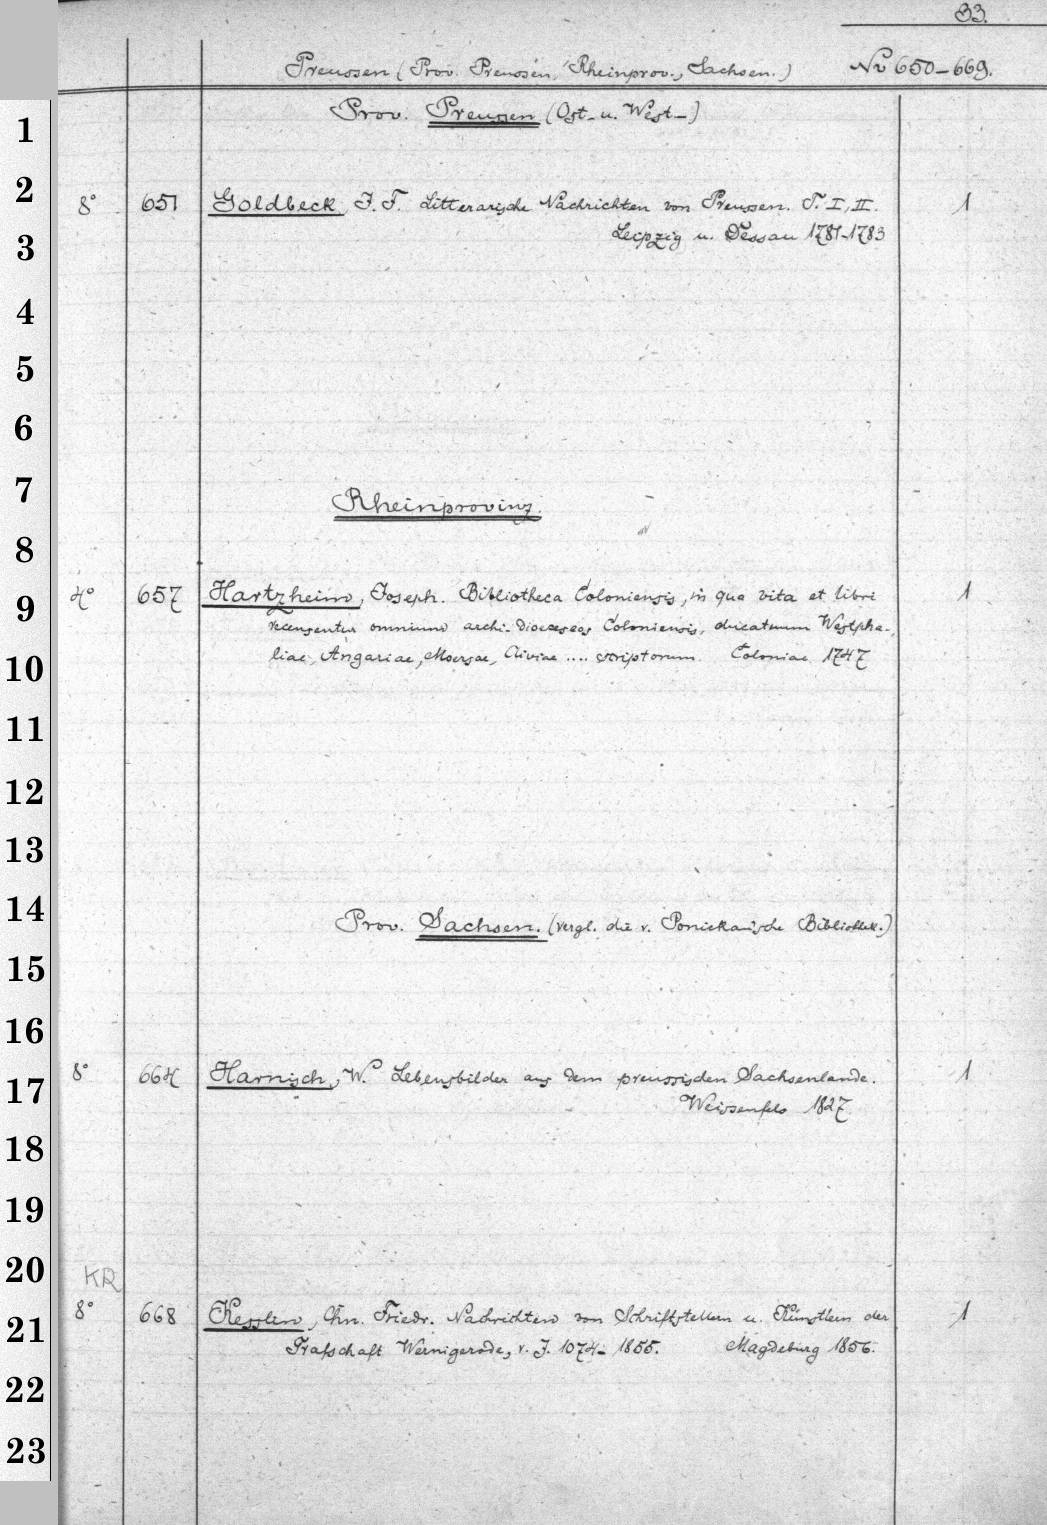 33.
Preussen (Prov. Preussen, Rheinprov., Sachsen.) No 650–669.
1 Prov. Preussen (Ost- u. West-)
2 8° 651 Goldbeck, J. F. Litterarische Nachrichten von Preussen. T. I, II. 1
3 Leipzig u. Dessau 1781-1783
4
5
6
7 Rheinprovinz.
8
9 4° 657 Hartzheim, Joseph. Bibliotheca Coloniensis, in qua vita et libri 1
recensentur omnium archi-dioeceseos Coloniensis, ducatuum Westpha-
10 liae, Angariae, Moersae, Cliviae .... scriptorum. Coloniae 1747
11
12
13
14 Prov. Sachsen. (vergl. die v. Ponickauische Bibliothek.)
15
16
17 8° 664 Harnisch, W. Lebensbilder aus dem preussischen Sachsenlande. 1
Weissenfels 1827
18
19
20 KR
21 8° 668 Kesslin, Chn. Friedr. Nachrichten von Schriftstellern u. Künstlern der 1
Grafschaft Wernigerode, v. J. 1074- 1855. Magdeburg 1856.
22
23